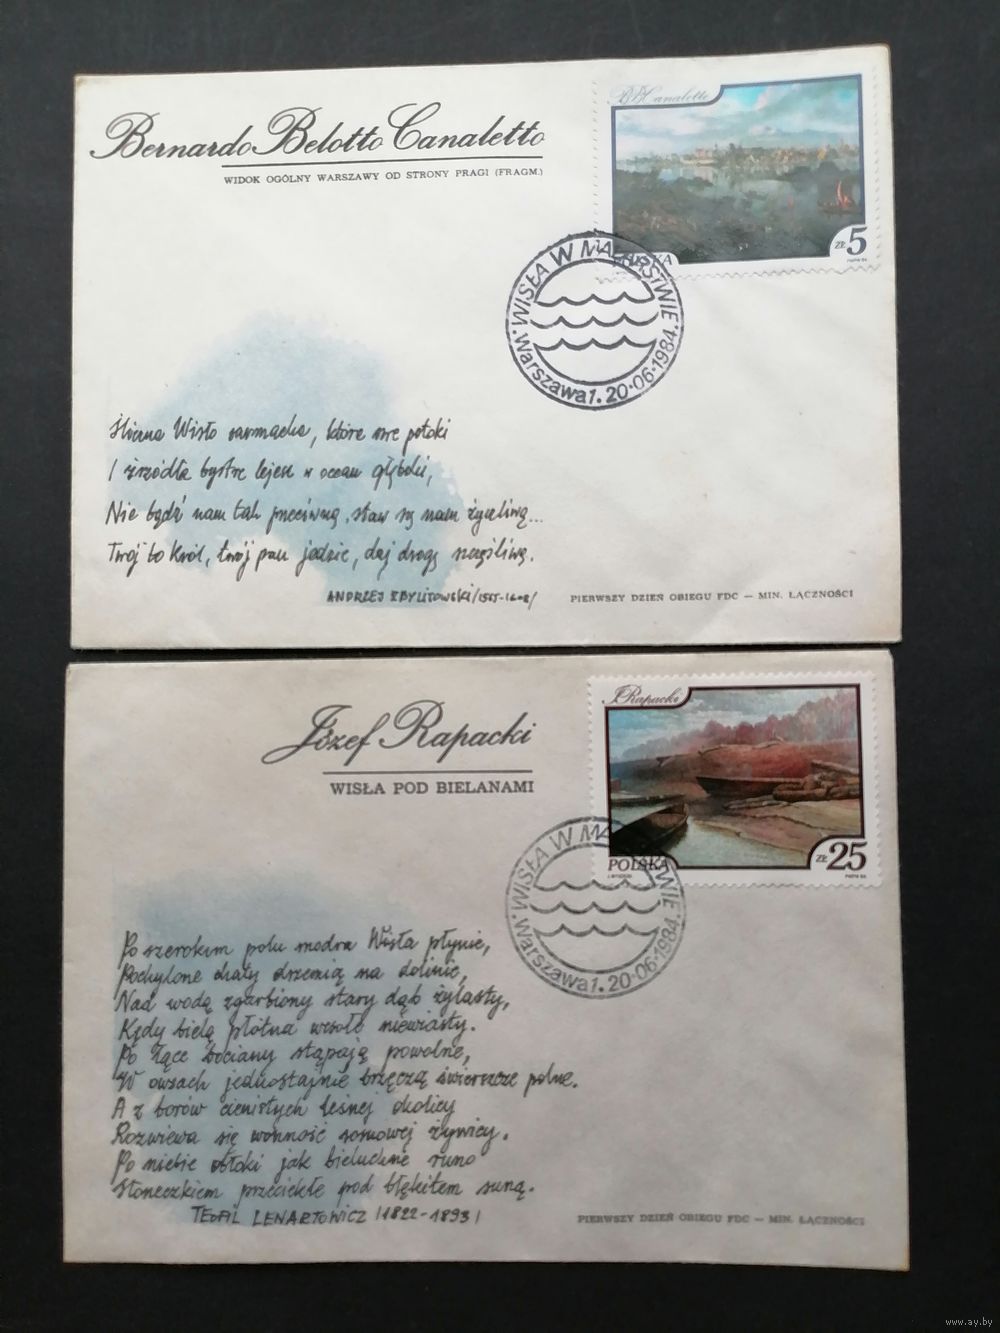 Bernardo Belotto Canaletto
WIDOK OGÓLNY WARSZAWY OD STRONY PRAGI (FRAGM.)
B.B. Canaletto
ZŁ 5
PWPW 84
WISŁA W MALARSTWIE.
Warszawa 1. 20-06-1984.
Śliczna Wisło sarmacka, które swe potoki
I źrzódła bystre lejesz w ocean głęboki,
Nie bądź nam tak przeciwną, staw się nam życzliwą...
Twój to Król, twój pan jedzie, daj drogę szczęśliwą.
ANDRZEJ ZBYLITOWSKI /1565-1608/
PIERWSZY DZIEŃ OBIEGU FDC — MIN. ŁĄCZNOŚCI
Józef Rapacki
WISŁA POD BIELANAMI
J. Rapacki
POLSKA
ZŁ 25
PWPW 84
WISŁA W MALARSTWIE.
Warszawa 1. 20-06-1984.
Po szerokim polu modra Wisła płynie,
Pochylone chaty drzemią na dolinie,
Nad wodą zgarbiony stary dąb żylasty,
Kędy bielą płótna wesołe niewiasty.
Po łące bociany stąpają powolne,
W owsach jednostajnie brzęczą świerszcze polne.
A z borów cienistych leśnej okolicy
Rozwiewa się wonność sosnowej żywicy.
Po niebie obłoki jak bieluchne runo
Słoneczkiem przeciekłe pod błękitem suną.
TEOFIL LENARTOWICZ /1822-1893/
PIERWSZY DZIEŃ OBIEGU FDC — MIN. ŁĄCZNOŚCI
www.ay.by